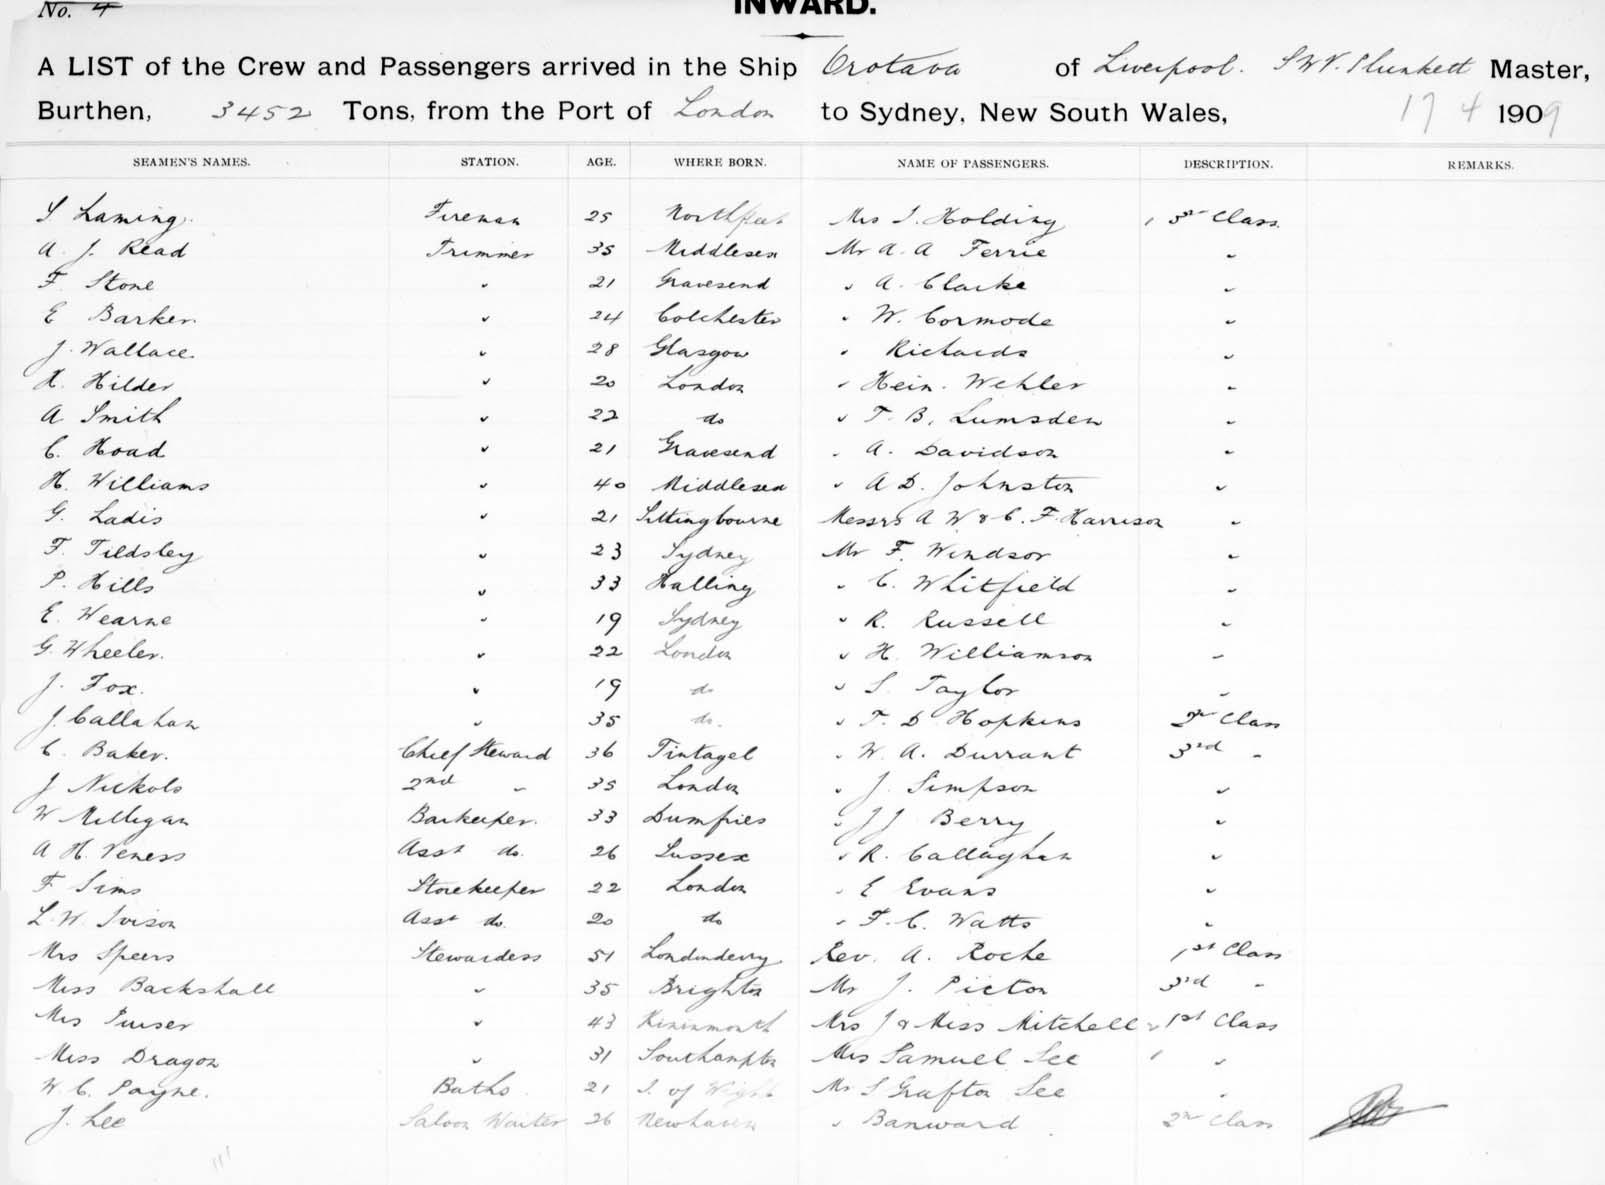 No. 4
INWARD.
A LIST of the Crew and Passengers arrived in the Ship Orotava of Liverpool. S W V. Plunkett Master,
Burthen, 3452 Tons, from the Port of London to Sydney, New South Wales, 17 4 1909
SEAMEN'S NAMES. STATION. AGE. WHERE BORN. NAME OF PASSENGERS. DESCRIPTION. REMARKS.
S Laming. Fireman 25 Northfleet Mrs S. Holding 1 3rd Class.
A. J. Read Trimmer 35 Middlesex Mr A. A Ferrie "
F. Stone " 21 Gravesend " A. Clarke "
E Barker. " 24 Colchester " W. Cormode "
J. Wallace. " 28 Glasgow " Richards "
H. Hilder " 20 London " Hein. Wehler "
A Smith " 22 do " T. B. Lumsden "
C. Hoad " 21 Gravesend " A. Davidson "
H. Williams " 40 Middlesex " A D. Johnston "
G. Ladis " 21 Sittingbourne Messrs A W & C. F. Harrison "
F. Tildsley " 23 Sydney Mr F. Windsor "
P. Hills " 33 Halling " C. Whitfield "
E. Wearne " 19 Sydney " R. Russell "
G. Wheeler. " 22 London " H. Williamson "
J. Fox. " 19 do " S. Taylor "
J. Callahan " 35 do. " T. D. Hopkins 2nd Class
C. Baker. Chief Steward 36 Tintagel " W. A. Durrant 3rd "
J Nickols 2nd " 35 London " J. Simpson "
W Milligan Barkeeper. 33 Dumfries " J J Berry "
A H. Veness Asst do. 26 Sussex " R. Callaghan "
F Sims Storekeeper 22 London " E Evans "
L. W. Ivison Asst do. 20 do " F. C. Watts "
Mrs Speers Stewardess 51 Londonderry Rev. A. Roche 1st Class
Miss Backshall " 35 Brighton Mr J. Picton 3rd "
Mrs Purser " 43 Kininmonth Mrs J & Miss Mitchell 2 1st Class
Miss Dragon " 31 Southampton Mrs Samuel Lee 1 "
W. C. Payne. Baths 21 I. of Wight Mr S Grafton Lee "
J. Lee Saloon Waiter 26 Newhaven " Banward 2nd Class